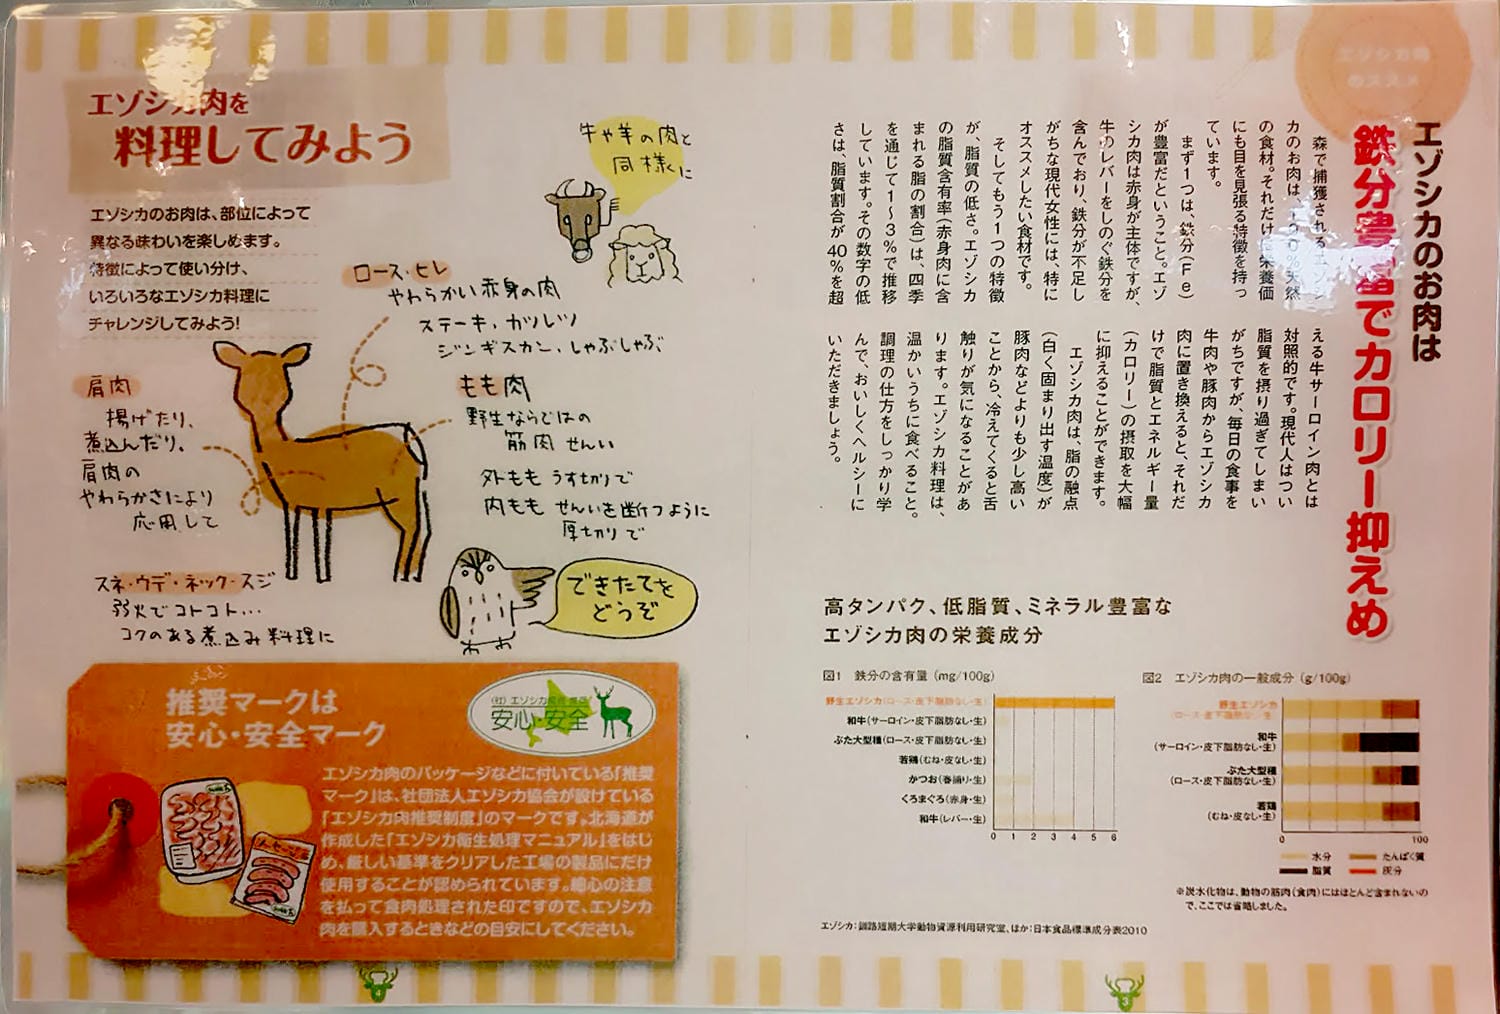 エゾシカ肉
のススメ
エゾシカのお肉は
鉄分豊富でカロリー抑えめ
森で捕獲されるエゾシ
カのお肉は、100%天然
の食材。それだけに栄養価
にも目を見張る特徴を持っ
ています。
まず1つは、鉄分(Fe)
が豊富だということ。エゾ
シカ肉は赤身が主体ですが、
牛のレバーをしのぐ鉄分を
含んでおり、鉄分が不足し
がちな現代女性には、特に
オススメしたい食材です。
そしてもう1つの特徴
が、脂質の低さ。エゾシカ
の脂質含有率(赤身肉に含
まれる脂の割合)は、四季
を通じて1〜3%で推移
しています。その数字の低
さは、脂質割合が40%を超
える牛サーロイン肉とは
対照的です。現代人はつい
脂質を摂り過ぎてしまい
がちですが、毎日の食事を
牛肉や豚肉からエゾシカ
肉に置き換えると、それだ
けで脂質とエネルギー量
(カロリー)の摂取を大幅
に抑えることができます。
エゾシカ肉は、脂の融点
(白く固まり出す温度)が
豚肉などよりも少し高い
ことから、冷えてくると舌
触りが気になることがあ
ります。エゾシカ料理は、
温かいうちに食べること。
調理の仕方をしっかり学
んで、おいしくヘルシーに
いただきましょう。
高タンパク、低脂質、ミネラル豊富な
エゾシカ肉の栄養成分
図1 鉄分の含有量 (mg/100g)
野生エゾシカ(ロース・皮下脂肪なし・生)
和牛(サーロイン・皮下脂肪なし・生)
ぶた大型種(ロース・皮下脂肪なし・生)
若鶏(むね・皮なし・生)
かつお(春捕り・生)
くろまぐろ(赤身・生)
和牛(レバー・生)
0 1 2 3 4 5 6
図2 エゾシカ肉の一般成分 (g/100g)
野生エゾシカ
(ロース・皮下脂肪なし・生)
和牛
(サーロイン・皮下脂肪なし・生)
ぶた大型種
(ロース・皮下脂肪なし・生)
若鶏
(むね・皮なし・生)
0 100
水分 たんぱく質
脂質 灰分
※炭水化物は、動物の筋肉(食肉)にはほとんど含まれないの
で、ここでは省略しました。
エゾシカ:釧路短期大学動物資源利用研究室、ほか:日本食品標準成分表2010
3
エゾシカ肉を
料理してみよう
エゾシカのお肉は、部位によって
異なる味わいを楽しめます。
特徴によって使い分け、
いろいろなエゾシカ料理に
チャレンジしてみよう!
牛や羊の肉と
同様に
ロース・ヒレ
やわらかい赤身の肉
ステーキ、カツレツ
ジンギスカン、しゃぶしゃぶ
肩肉
揚げたり、
煮込んだり。
肩肉の
やわらかさにより
応用して
もも肉
野生ならではの
筋肉せんい
外もも うすきりで
内もも せんいを断つように
厚切りで
スネ・ウデ・ネック・スジ
弱火でコトコト…
コクのある煮込み料理に
できたてを
どうぞ
推奨マークは
安心・安全マーク
(社)エゾシカ協会推奨
安心・安全
エゾシカ肉のパッケージなどに付いている「推奨
マーク」は、社団法人エゾシカ協会が設けている
「エゾシカ肉推奨制度」のマークです。北海道が
作成した「エゾシカ衛生処理マニュアル」をはじ
め、厳しい基準をクリアした工場の製品にだけ
使用することが認められています。細心の注意
を払って食肉処理された印ですので、エゾシカ
肉を購入するときなどの目安にしてください。
ソーセージ
4